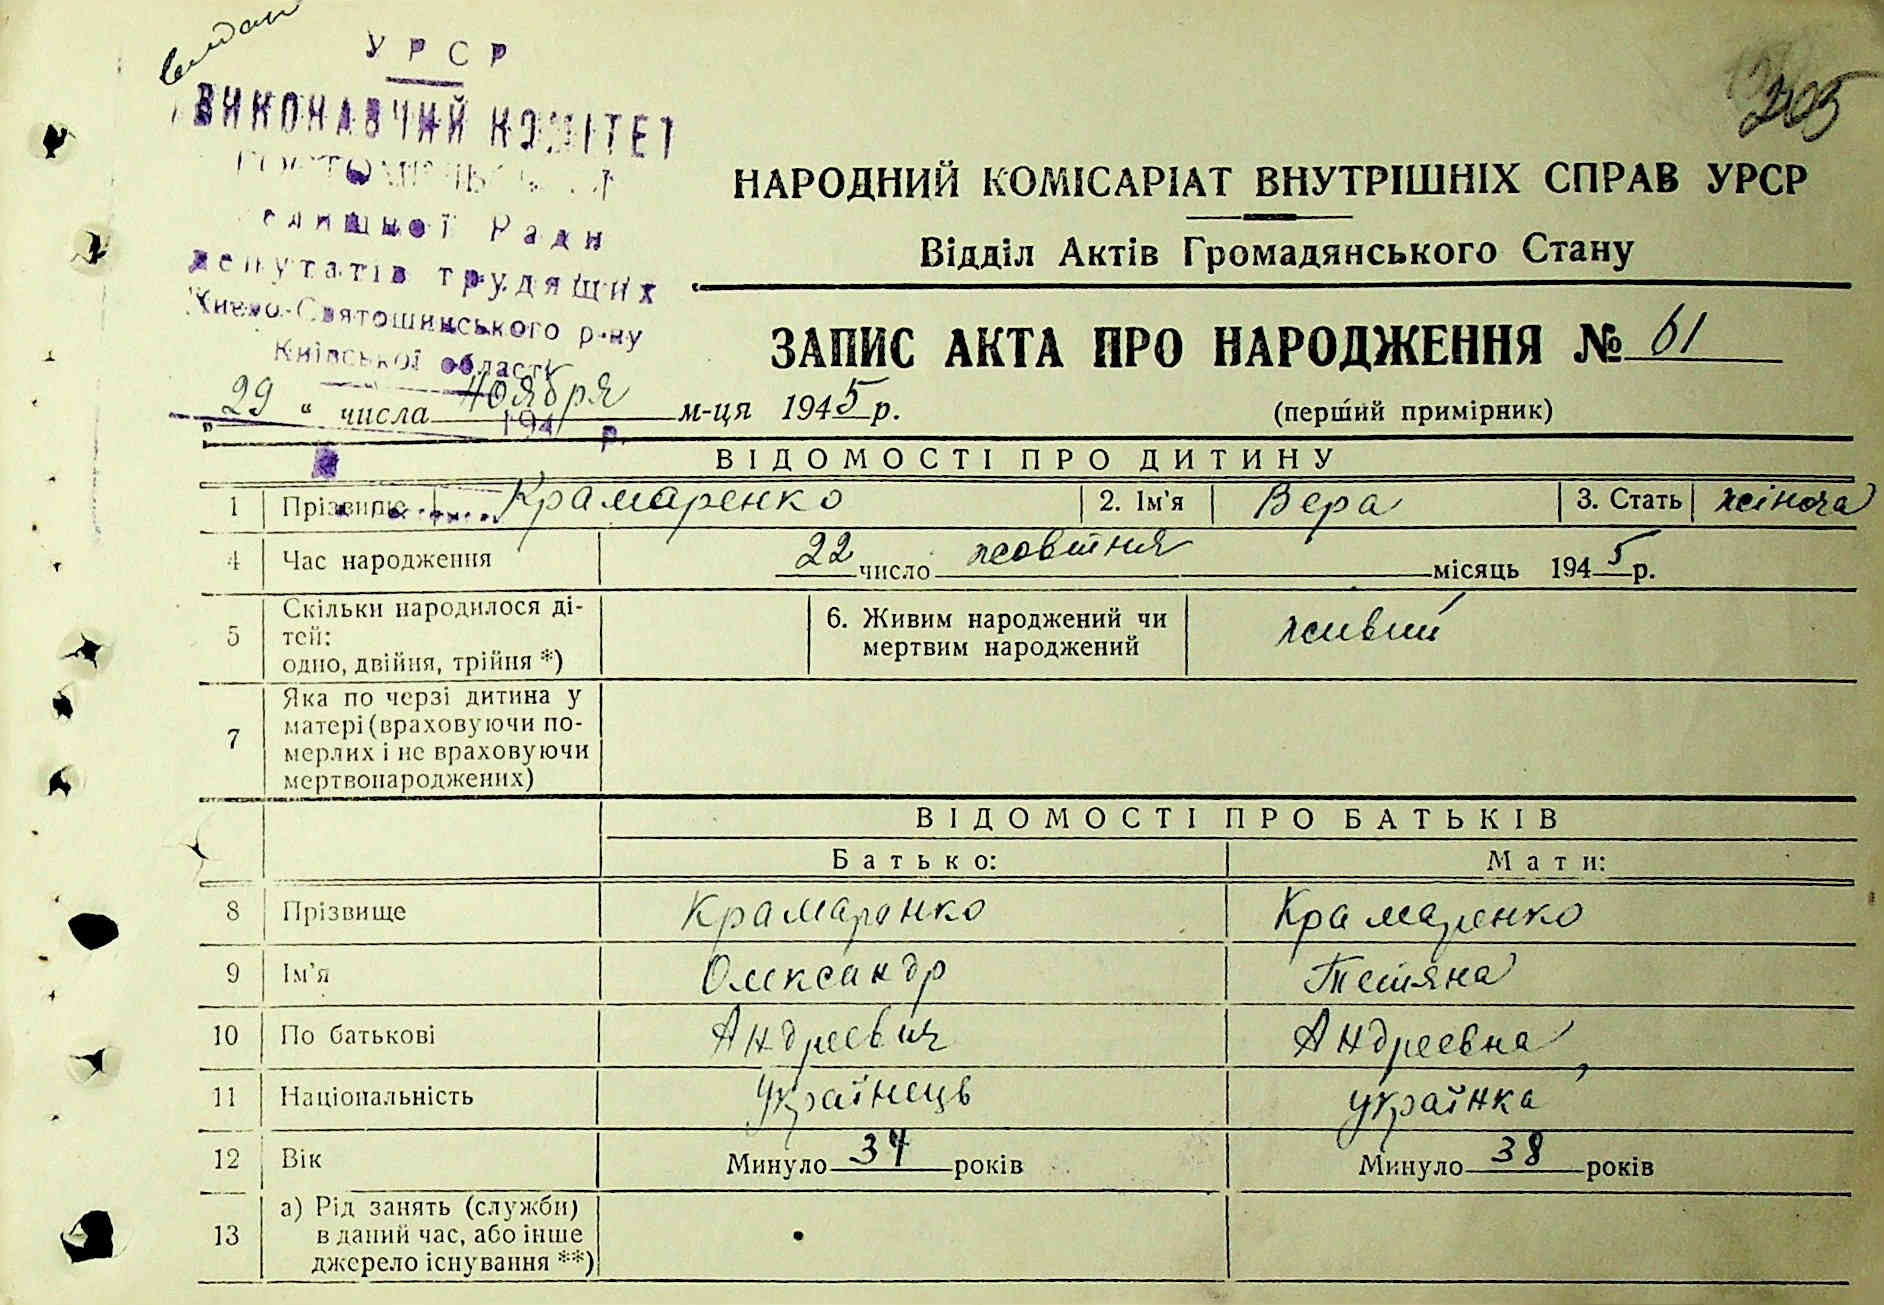 УРСР
ВИКОНАВЧИЙ КОМІТЕТ
Ради
депутатів трудящих
Києво-Святошинського р-ну
Київської області
194 р.
205
НАРОДНИЙ КОМІСАРІАТ ВНУТРІШНІХ СПРАВ УРСР
Відділ Актів Громадянського Стану
ЗАПИС АКТА ПРО НАРОДЖЕННЯ № 61
29 " числа ноября м-ця 1945 р.
(перший примірник)
ВІДОМОСТІ ПРО ДИТИНУ
1 Прізвище Крамаренко 2. Ім'я Вера 3. Стать жіноча
4 Час народження 22 число жовтня місяць 1945 р.
5 Скільки народилося ді-
тей:
одно, двійня, трійня *)
6. Живим народжений чи
мертвим народжений
живий
7 Яка по черзі дитина у
матері (враховуючи по-
мерлих і не враховуючи
мертвонароджених)
ВІДОМОСТІ ПРО БАТЬКІВ
Батько: Мати:
8 Прізвище Крамаренко Крамаренко
9 Ім'я Олександр Тетяна
10 По батькові Андреевич Андреевна
11 Національність Українець українка
12 Вік Минуло 34 років Минуло 38 років
13 а) Рід занять (служби)
в даний час, або інше
джерело існування **)